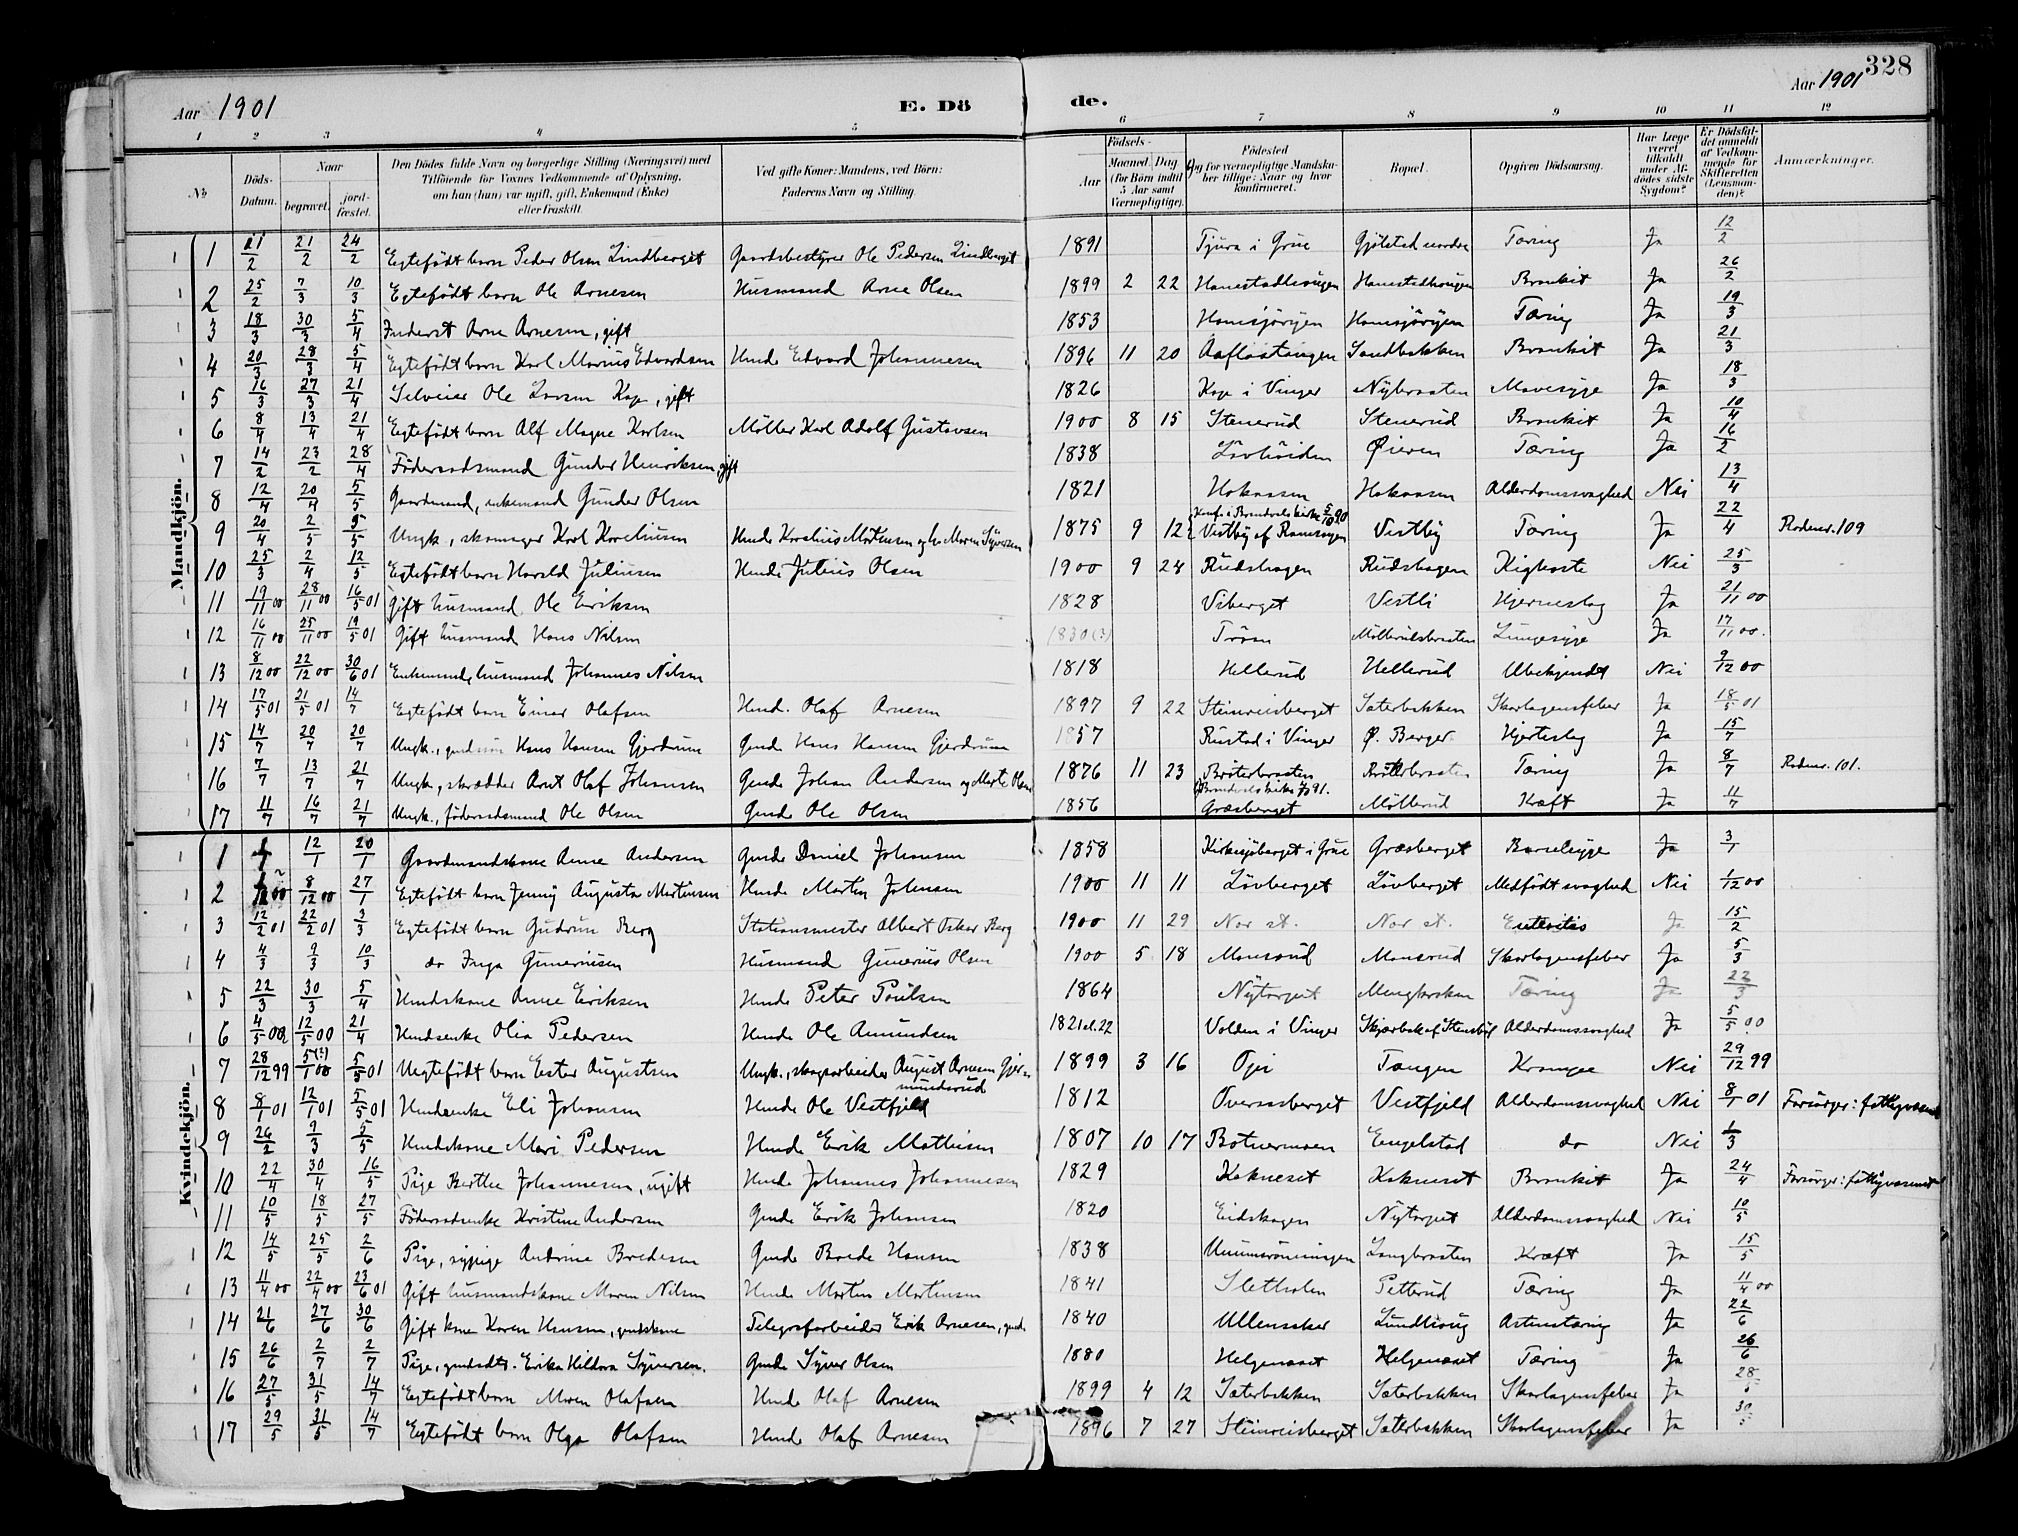 328
Aar 1901
E. Dö
de.
Aar 1901
1 2 3 4 5 6 7 8 9 10 11 12
No
Döds-Datum.
Naar
begravet.
jord-fæstet.
Den Dödes fulde Navn og borgerlige Stilling (Næringsvei) med
Tilföiende for Voxnes Vedkommende af Oplysning,
om han (hun) var ugift, gift, Enkemand (Enke)
eller fraskilt.
Ved gifte Koner: Mandens, ved Börn:
Faderens Navn og Stilling.
Födsels-
Aar
Maaned. Dag
(for Börn indtil
5 Aar samt
Værnepligtige).
Födested
og for værnepligtige Mandska-
ber tillige: Naar og hvor
konfirmeret.
Bopæl.
Opgiven Dödsaarsag.
Har Læge
været
tilkaldt
under Af-
dödes sidste
Sygdom?
Er Dödsfal-
det anmeldt
af Vedkom-
mende for
Skifteretten
(Lensman-
den)?
Anmærkninger.
Mandkjön.
1 21/2 21/2 24/2 Egtefödt barn Peder Olsen Lindberget Gaardsbestyrer Ole Pedersen Lindberget 1891 Tjura i Grue Gjölstad nordre Tæring Ja 12/2
2 25/2 7/3 10/3 Egtefödt barn Ole Arnesen Husmand Arne Olsen 1899 2 22 Bronkit Ja 26/2
3 18/3 30/3 5/4 Inderst Arne Arnesen, gift 1853 Tæring Ja 19/3
4 20/3 28/3 5/4 Egtefödt barn Karl Marius Edvardsen Husmd. Edvard Johannesen 1896 11 20 Aaflaatangen Sandbakken Bronkit Ja 21/3
5 16/3 27/3 21/4 Selveier Ole Larsen Kage, gift 1826 Kage i Vinger Nybraaten Mavesyge Ja 18/3
6 8/4 13/4 21/4 Egtefödt barn Alf Magne Karlsen Möller Karl Adolf Gustavsen 1900 8 15 Stenerud Stenerud Bronkit Ja 10/4
7 14/2 23/2 28/4 Föderaadsmand Gunder Henriksen, gift 1838 Øieren Tæring Ja 16/2
8 12/4 20/4 5/5 Gaardmand, enkemand Gunder Olsen 1821 Hokaasen Hokaasen Alderdomssvaghed Nei 13/4
9 20/4 2/5 5/5 Ungk., skomager Karl Korneliussen 1875 9 12 Konf. i Brandvals kirke 5/10 90 Vestby Vestby Tæring Ja 22/4 Rodenr. 109
10 25/3 2/4 12/5 Egtefödt barn Harald Juliussen Husmd. Julius Olsen 1900 9 24 Rudshagen Rudshagen Kighoste Nei 25/3
11 19/11 00 28/11 00 16/5 01 Gift husmand Ole Eriksen 1828 Viberget Vestli Hjerneslag Ja 21/11 00
12 16/11 00 25/11 00 19/5 01 Gift husmand Hans Nilsen 1830 (?) Lungesyge Ja 17/11 00.
13 8/12 00 22/12 00 30/6 01 Enkemand, husmand Johannes Nilsen 1818 Hellerud Hellerud Ubekjendt Nei 9/12 00
14 17/5 01 21/5 01 14/7 Egtefödt barn Einar Olafsen Husmd. Olaf Arnesen 1897 9 22 Steinreisberget Sæterbakken Skarlagensfeber Ja 18/5 01
15 14/7 20/7 20/7 Ungk., Hans Hansen Gjerdrum Gmd. Hans Hansen Gjerdrum 1857 Rustad i Vinger Ø. Berger Hjerteslag Ja 15/7
16 7/7 13/7 21/7 Ungk., skrædder Arnt Olaf Johansen Gmd. Johan Andersen og Marte Olsen 1876 11 23 Bröterbraaten Bröterbraaten Tæring Ja 8/7 Rodenr. 101.
17 11/7 16/7 21/7 Ungk., föderaadsmand Ole Olsen Gmd. Ole Olsen 1856 Græsberget Möllerud Kræft Ja 11/7
Kvindekjön.
1 12/1 20/1 Gaardmandskone Anne Andersen Gmd. Daniel Johansen 1858 Kirkesjöberget i Grue Græsberget Barselsyge Ja 3/1
2 8/12 00 27/1 Egtefödt barn Jenny Augusta Martinsen Husmd. Martin Johansen 1900 11 11 Lövberget Lövberget Medfödt svaghed Nei 1/12 00
3 12/2 01 22/2 01 3/3 Egtefödt barn Gudrun Berg Stationsmester Albert Oskar Berg 1900 11 29 Nor st. Nor st. Enteritis Ja 15/2
4 4/3 9/3 10/3 do Inga Gunerusen Husmand Gunerius Olsen 1900 5 18 Monsrud Monsrud Skarlagensfeber Ja 5/3
5 22/3 30/3 5/4 Husmdskone Anne Eriksen Husmd. Peter Poulsen 1864 Nytorpet Tæring Ja 22/3
6 4/5 00 12/5 00 21/4 Husmdsenke Olia Pedersen Husmd. Ole Amundsen 1821 el. 22 Volden i Vinger Alderdomssvaghed Ja 5/5 00
7 28/12 99 5/1 00 (?) 5/5 01 Uegtefödt barn Ester Augustsen Ungk., skogsarbeider August Arnesen Gjer-
mundsrud 1899 3 16 Tangen Krampe Nei 29/12 99
8 8/1 01 12/1 01 5/5 01 Husmdsenke Eli Johansen Husmd. Ole Vestfjeld 1812 Overaasberget Vestfjeld Alderdomssvaghed Nei 8/1 01 Forsörger: fattigvæsenet
9 26/2 9/3 5/5 Husmdskone Mari Pedersen Husmd. Erik Mathisen 1807 10 17 Botnermoen Engelstad do Nei 1/3
10 22/4 30/4 16/5 Pige Berthe Johannesen, ugift Husmd. Johannes Johannesen 1829 Kakneset Kakneset Bronkit Ja 24/4 Forsörger: fattigvæsenet
11 10/5 18/5 27/5 Föderaadsenke Kristine Andersen Gmd. Erik Johansen 1820 Eidskogen Nytorpet Alderdomssvaghed Nei 10/5
12 14/5 25/5 2/6 Pige, sypige Andrine Bredesen Gmd. Brede Hansen 1838 Langbraaten Kræft Ja 15/5
13 11/4 00 22/4 00 23/6 01 Gift husmandskone Maren Nilsen Husmd. Martin Martinsen 1841 Sletholen Petterud Tæring Ja 11/4 00
14 21/6 27/6 30/6 Gift kone Karen Hansen, gmdskone Telegrafarbeider Erik Arnesen, gmd. 1840 Ullensaker Ja 22/6
15 26/6 2/7 2/7 Pige, gmdsdtr. Erika Hildora Syversen. Gmd. Syver Olsen 1880 Helgenæset Helgenæset Tæring Ja 26/6
16 27/5 31/5 14/7 Egtefödt barn Maren Olafsen Husmd. Olaf Arnesen 1899 4 12 Sæterbakken Sæterbakken Skarlagensfeber Ja 28/5
17 29/5 31/5 14/7 Egtefödt barn Olga Olafsen Husmd. Olaf Arnesen 1896 7 27 Steinreisberget Sæterbakken Skarlagensfeber Ja 30/5